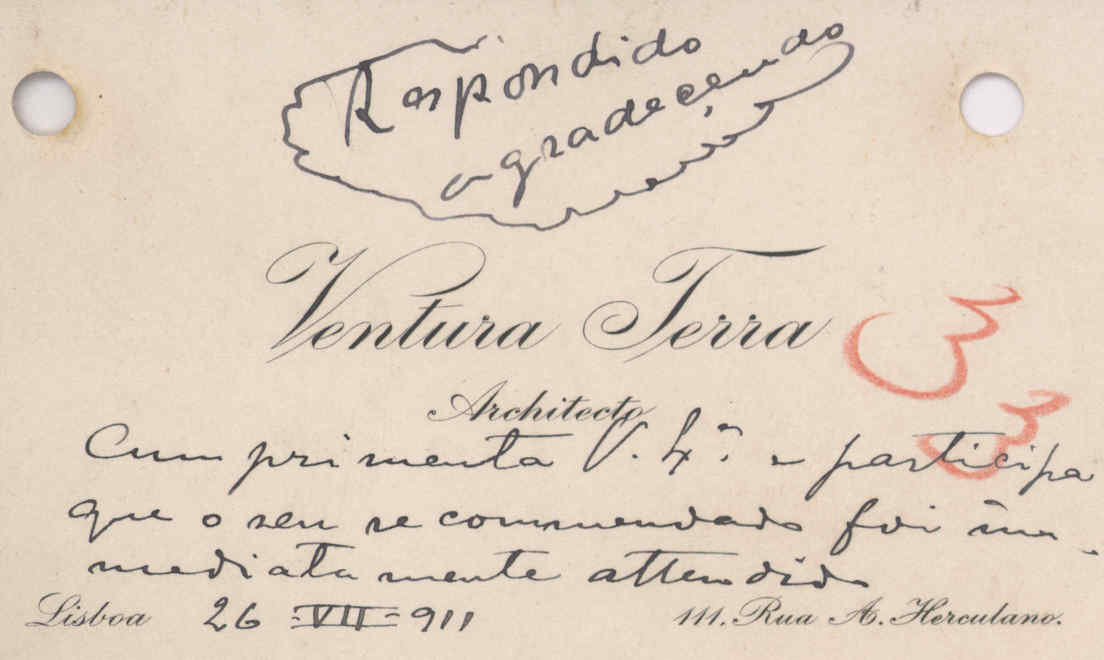 Respondido
agradecendo
Ventura Terra
Architecto
Cumprimenta V. Ex.ª e participa
que o seu recommendado foi im-
mediatamente attendido
Lisboa 26-VII-911
111. Rua A. Herculano.
33